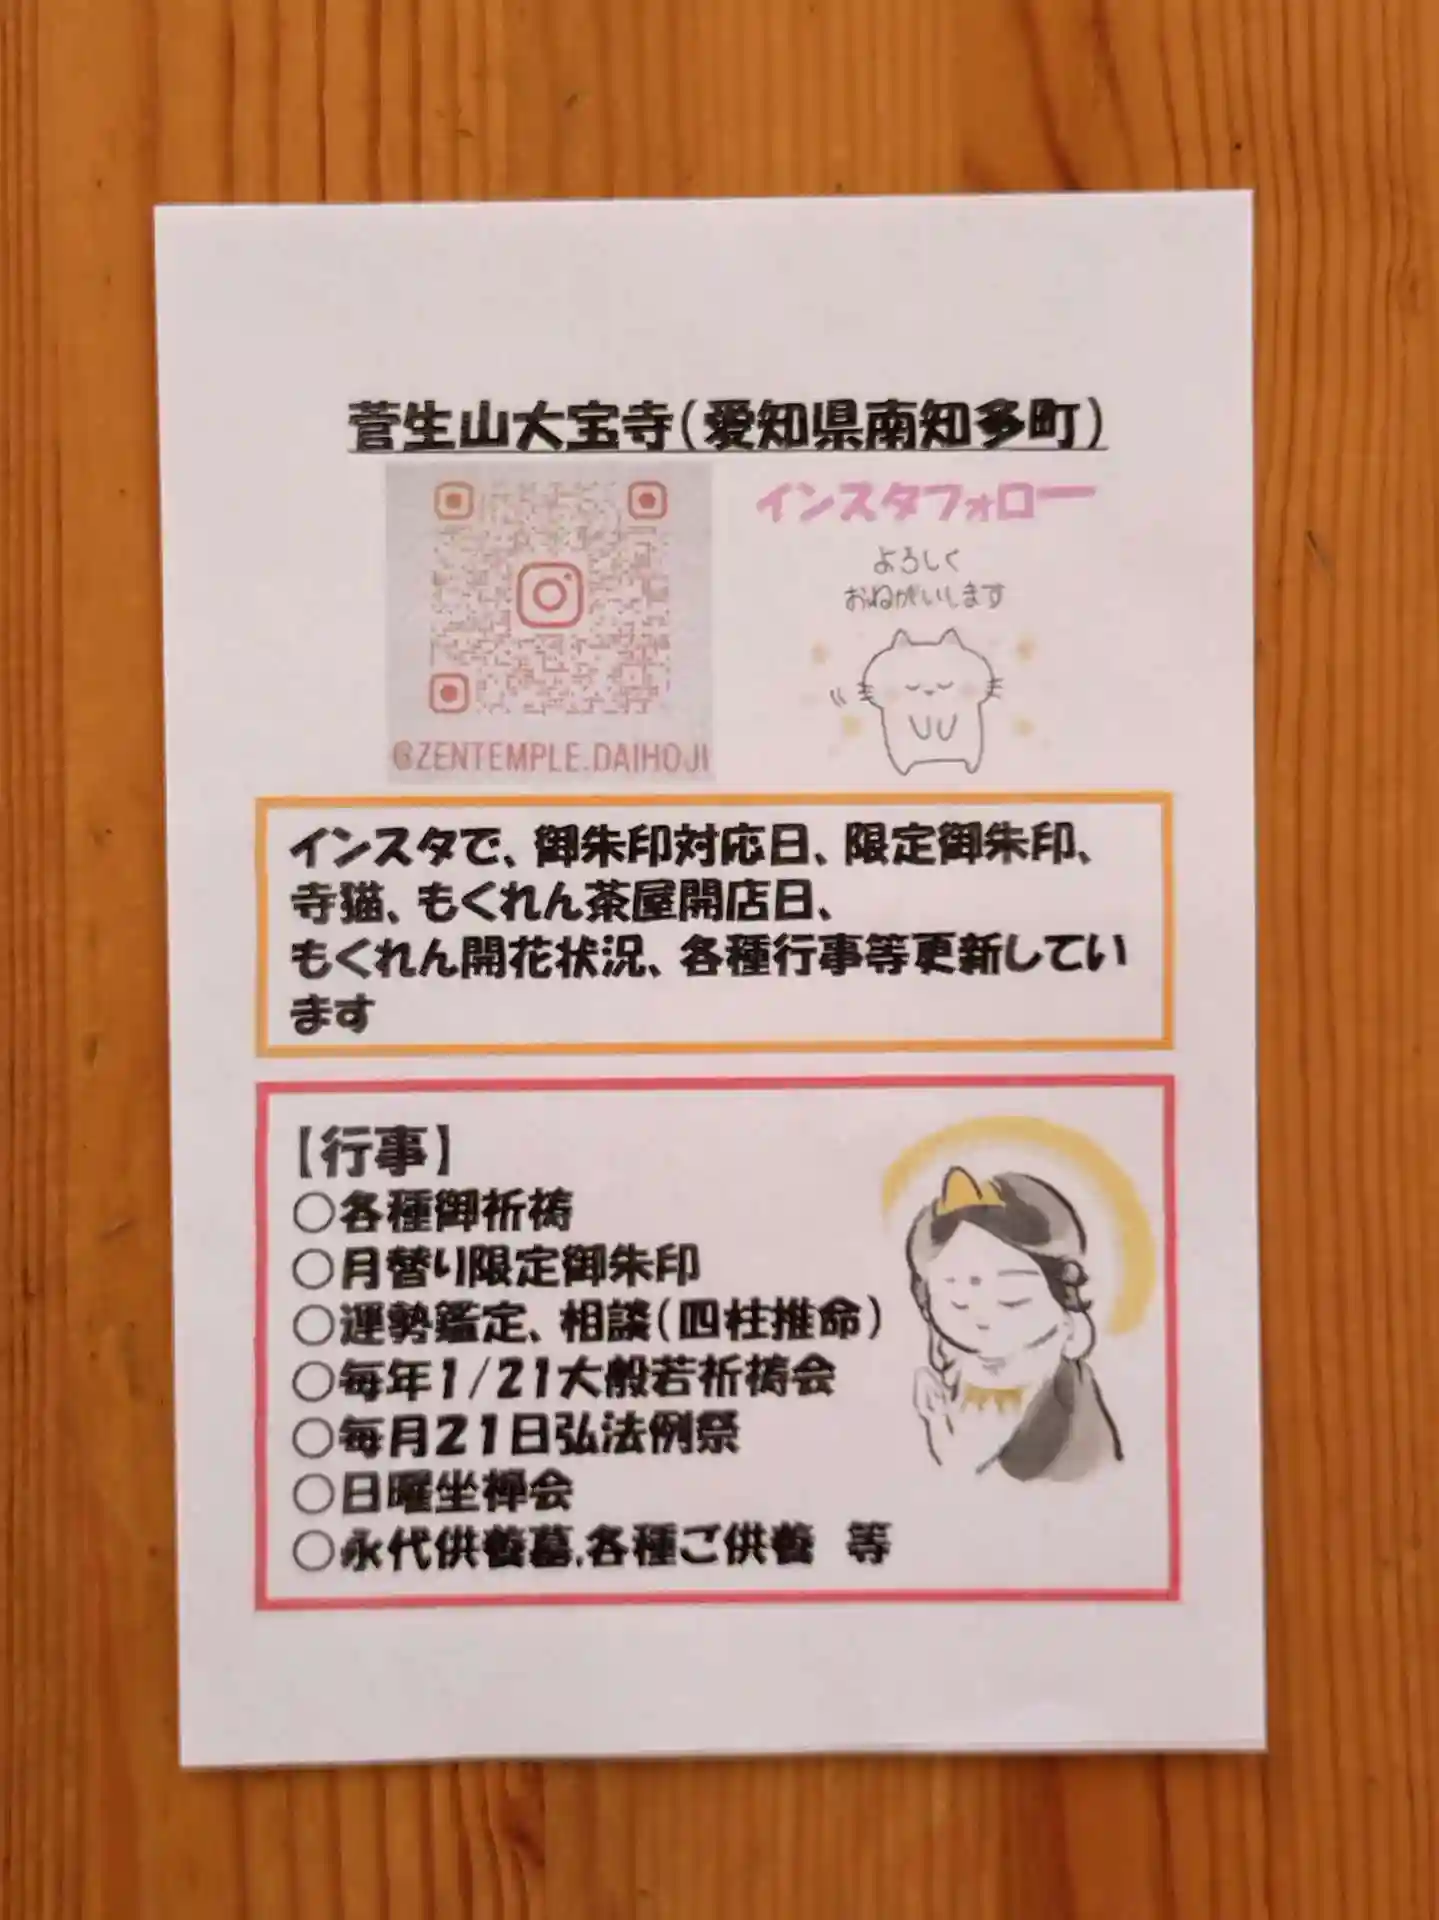 菅生山大宝寺(愛知県南知多町)
インスタフォロー
よろしく
おねがいします
@ZENTEMPLE.DAIHOJI
インスタで、御朱印対応日、限定御朱印、
寺猫、もくれん茶屋開店日、
もくれん開花状況、各種行事等更新してい
ます
【行事】
○各種御祈祷
○月替り限定御朱印
○運勢鑑定、相談(四柱推命)
○毎年1/21大般若祈祷会
○毎月21日弘法例祭
○日曜坐禅会
○永代供養墓.各種ご供養 等